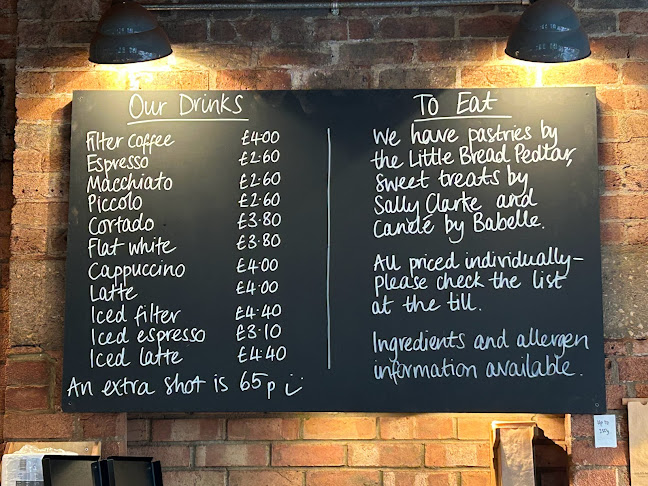 Our Drinks
Filter Coffee £4.00
Espresso £2.60
Macchiato £2.60
Piccolo £2.60
Cortado £3.80
Flat white £3.80
Cappuccino £4.00
Latte £4.00
Iced filter £4.40
Iced espresso £3.10
Iced latte £4.40
An extra shot is 65p
To Eat
We have pastries by
the Little Bread Pedlar,
Sweet treats by
Sally Clarke and
Candé by Babelle.
All priced individually–
please check the list
at the till.
Ingredients and allergen
information available.